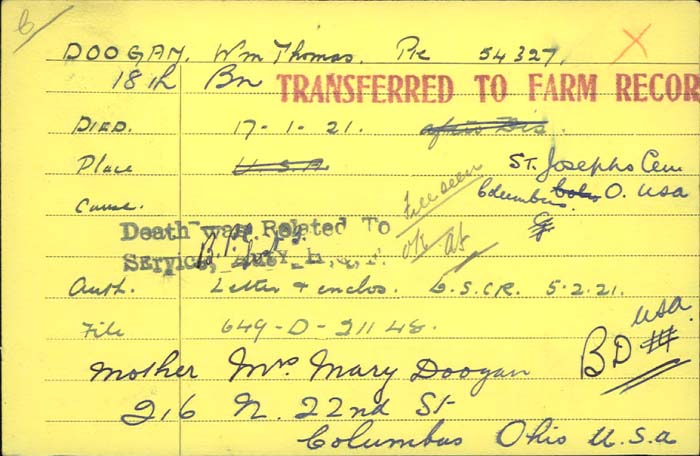 DOOGAN, Wm Thomas. Pte 54327.
18th Bn TRANSFERRED TO FARM RECOR
DIED. 17-1-21. after Dis.
Place U.S.A. ST. Josephs Cem
Columbus. O. USA
Cause.
File seen
Death was Related To
Service,
Auth. Letter & enclos. D.S.C.R. 5-2-21.
File 649-D-21148.
BD USA
Mother Mrs Mary Doogan
216 N. 22nd St
Columbus Ohio U.S.A